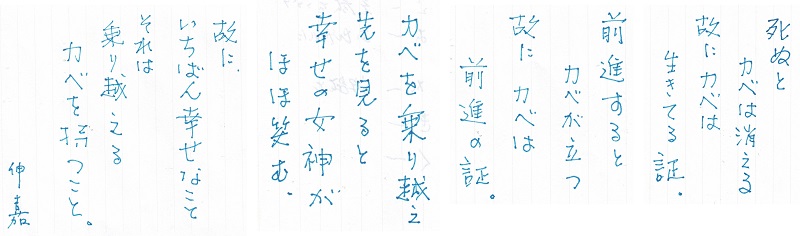 死ぬと
カベは消える
故にカベは
生きてる証。
前進すると
カベが立つ
故に カベは
前進の証。
カベを乗り越え
先を見ると
幸せの女神が
ほほ笑む。
故に、
いちばん幸せなこと
それは
乗り越える
カベを持つこと。
伸嘉